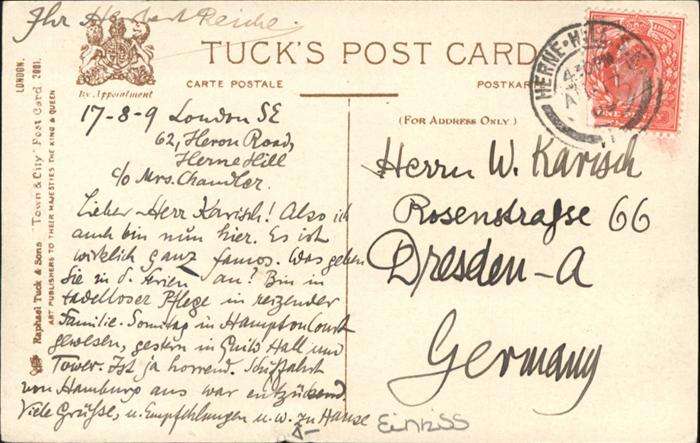 Ihr Herbert Reiche.
TUCK'S POST CARD
CARTE POSTALE
POSTKARTE
By Appointment
(FOR ADDRESS ONLY)
LONDON.
Raphael Tuck & Sons "Town & City" Post Card 2001.
ART PUBLISHERS TO THEIR MAJESTIES THE KING & QUEEN
HERNE-HILL
17-8-9 London SE
62, Heron Road,
Herne Hill
c/o Mrs. Chandler.
Lieber Herr Karisch! Also ich
auch bin nun hier. Es ist
wirklich ganz famos. Was geben
Sie in d. Ferien an? Bin in
tadelloser Pflege in reizender
Familie. Sonntag in Hampton Court
gewesen, gestern in Guild Hall und
Tower. Ist ja horrend. Schiffahrt
von Hamburg aus war entzückend.
Viele Grüße, u. Empfehlungen u.w. zu Hause
Herrn W. Karisch
Rosenstraße 66
Dresden-A
Germany
Einriss